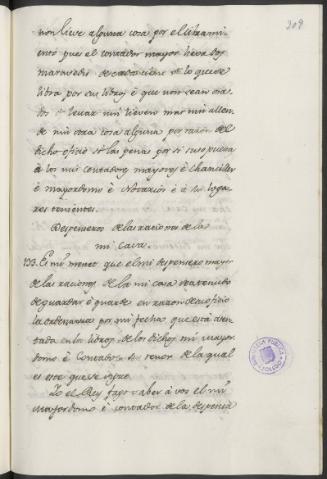 209
non lieve alguna cosa por el libramiento
ento que el contador mayor lieva dos
maravedis de cada uno de lo que se
libra por sus libros, é que non sean osados
dos de levar nin lieven mas nin allende
nin otra cosa alguna por razon del
dicho oficio so las penas por si suso puesta
à los mis contadores mayores é chanciller
é mayordomo é Notarios é à sus lugares
res tenientes.
Despenseros de las raciones de la
mi casa.
133. Es mi merced que el mi despensero mayor
de las raciones de la mi casa sea tenudo
de guardar é guarde en razon de su oficio
la ordenanza por mi fecha que està asentada
tada en los libros de los dichos mi mayordomo
domo é Contadores su tenor de la qual
es este que se sigue.
Yo el Rey fago saber à vos el mi
mayordomo é contador de la despensa